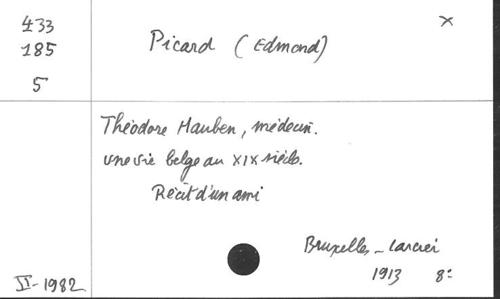 433
185
5
x
Picard (Edmond)
Théodore Hauben, médecin.
une vie belge au XIX siècle.
Récit d'un ami
Bruxelles - Larcier
1913 8º
VI-1982